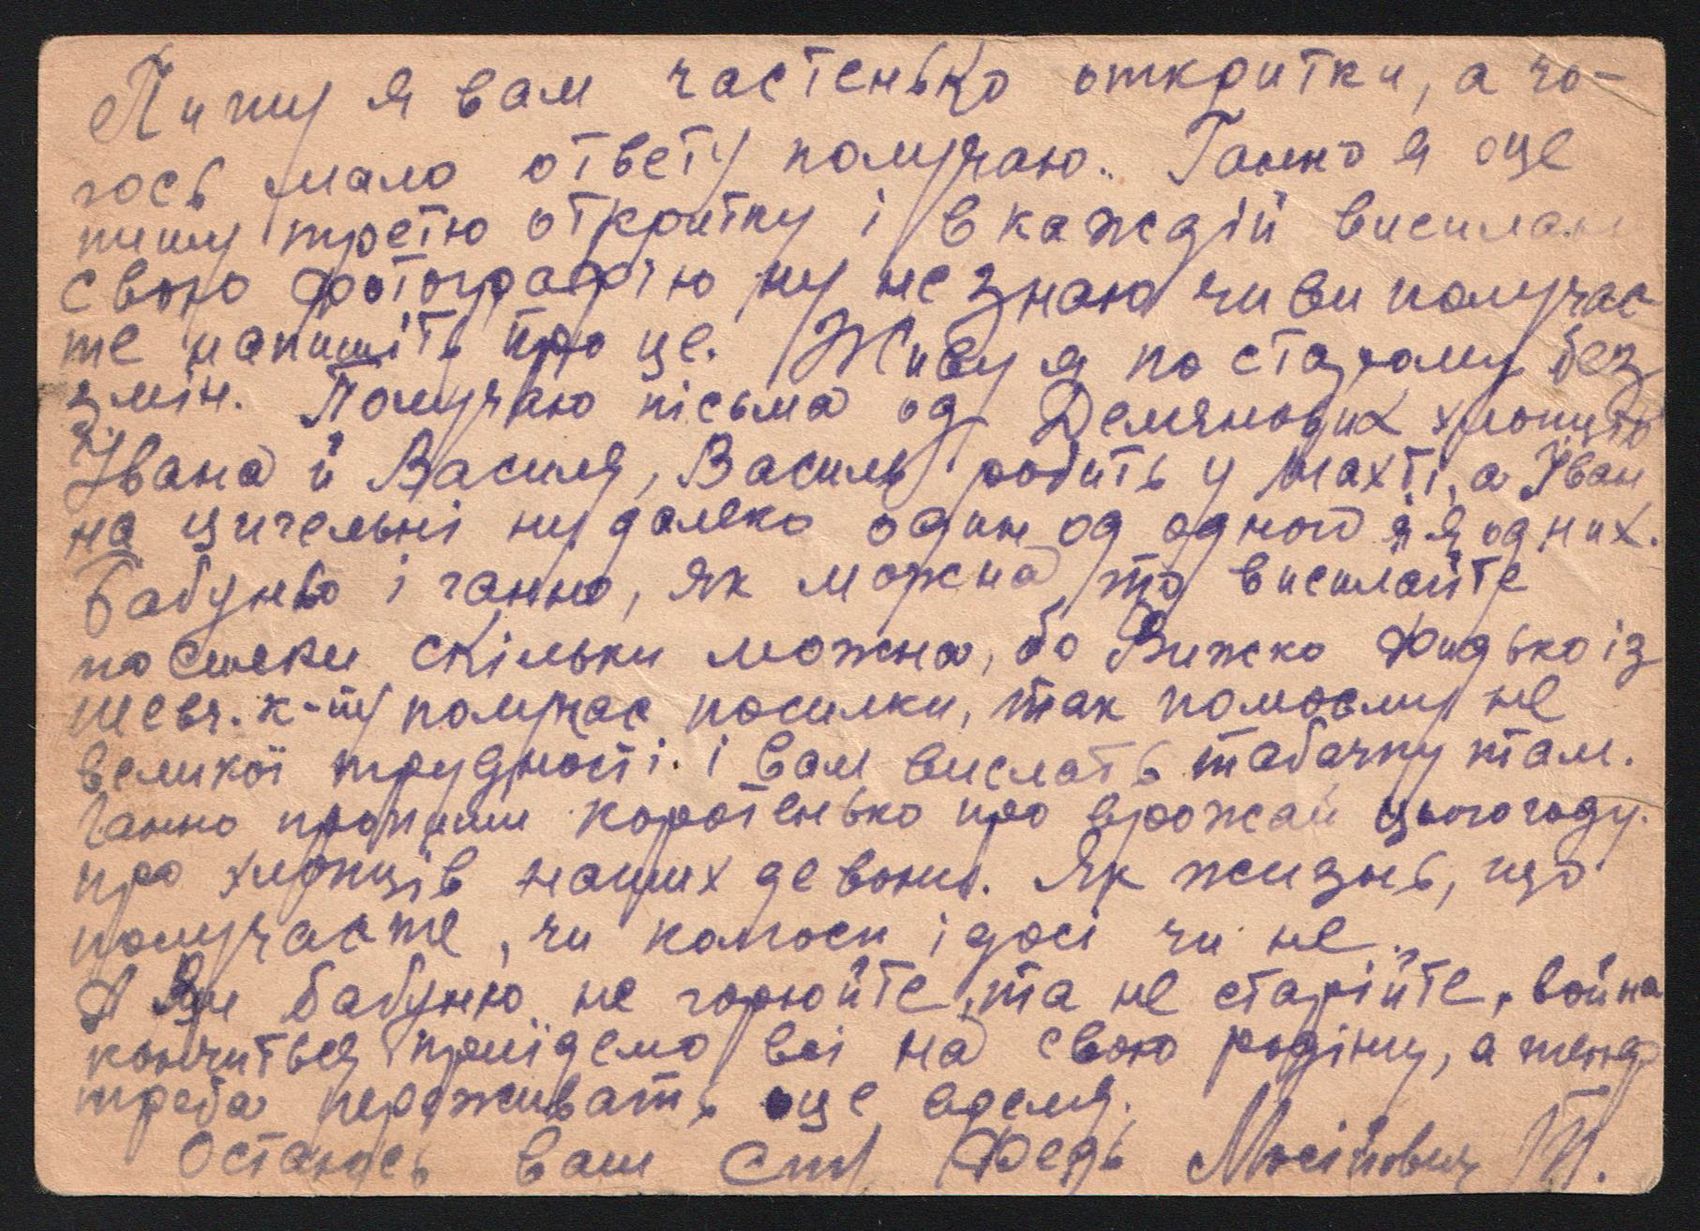 Пишу я вам частенько откритки, а чо-
гось мало ответу получаю.. Ганно я оце
пишу третю откритку і в каждій висилаю
свою фотографію ну не знаю чи ви получає
те напишіть про це. Живу я по старому без
змін. Получаю пісьма од Демянових хлопців
Івана й Василя, Василь робить у шахті, а Іван
на цигельні ну далеко один од одного й я од них.
Бабуню і ганно, як можна то висилайте
посилки скільки можна, бо Вижко Фидько із
шевч. к-ту получає посилки, так помоєму не
великої трудності і вам вислать табачку там.
Ганно пропиши коротенько про врожай цього году.
про хлопців наших де вони. Як жизнь, що
получаєте, чи колоски ідосі чи не..
А Ви бабуню не горюйте, та не старійте, война
кончиться прийдемо всі на свою родіну, а тепер
треба переживать оце время.
Остаюсь ваш Федь Мосійович П.